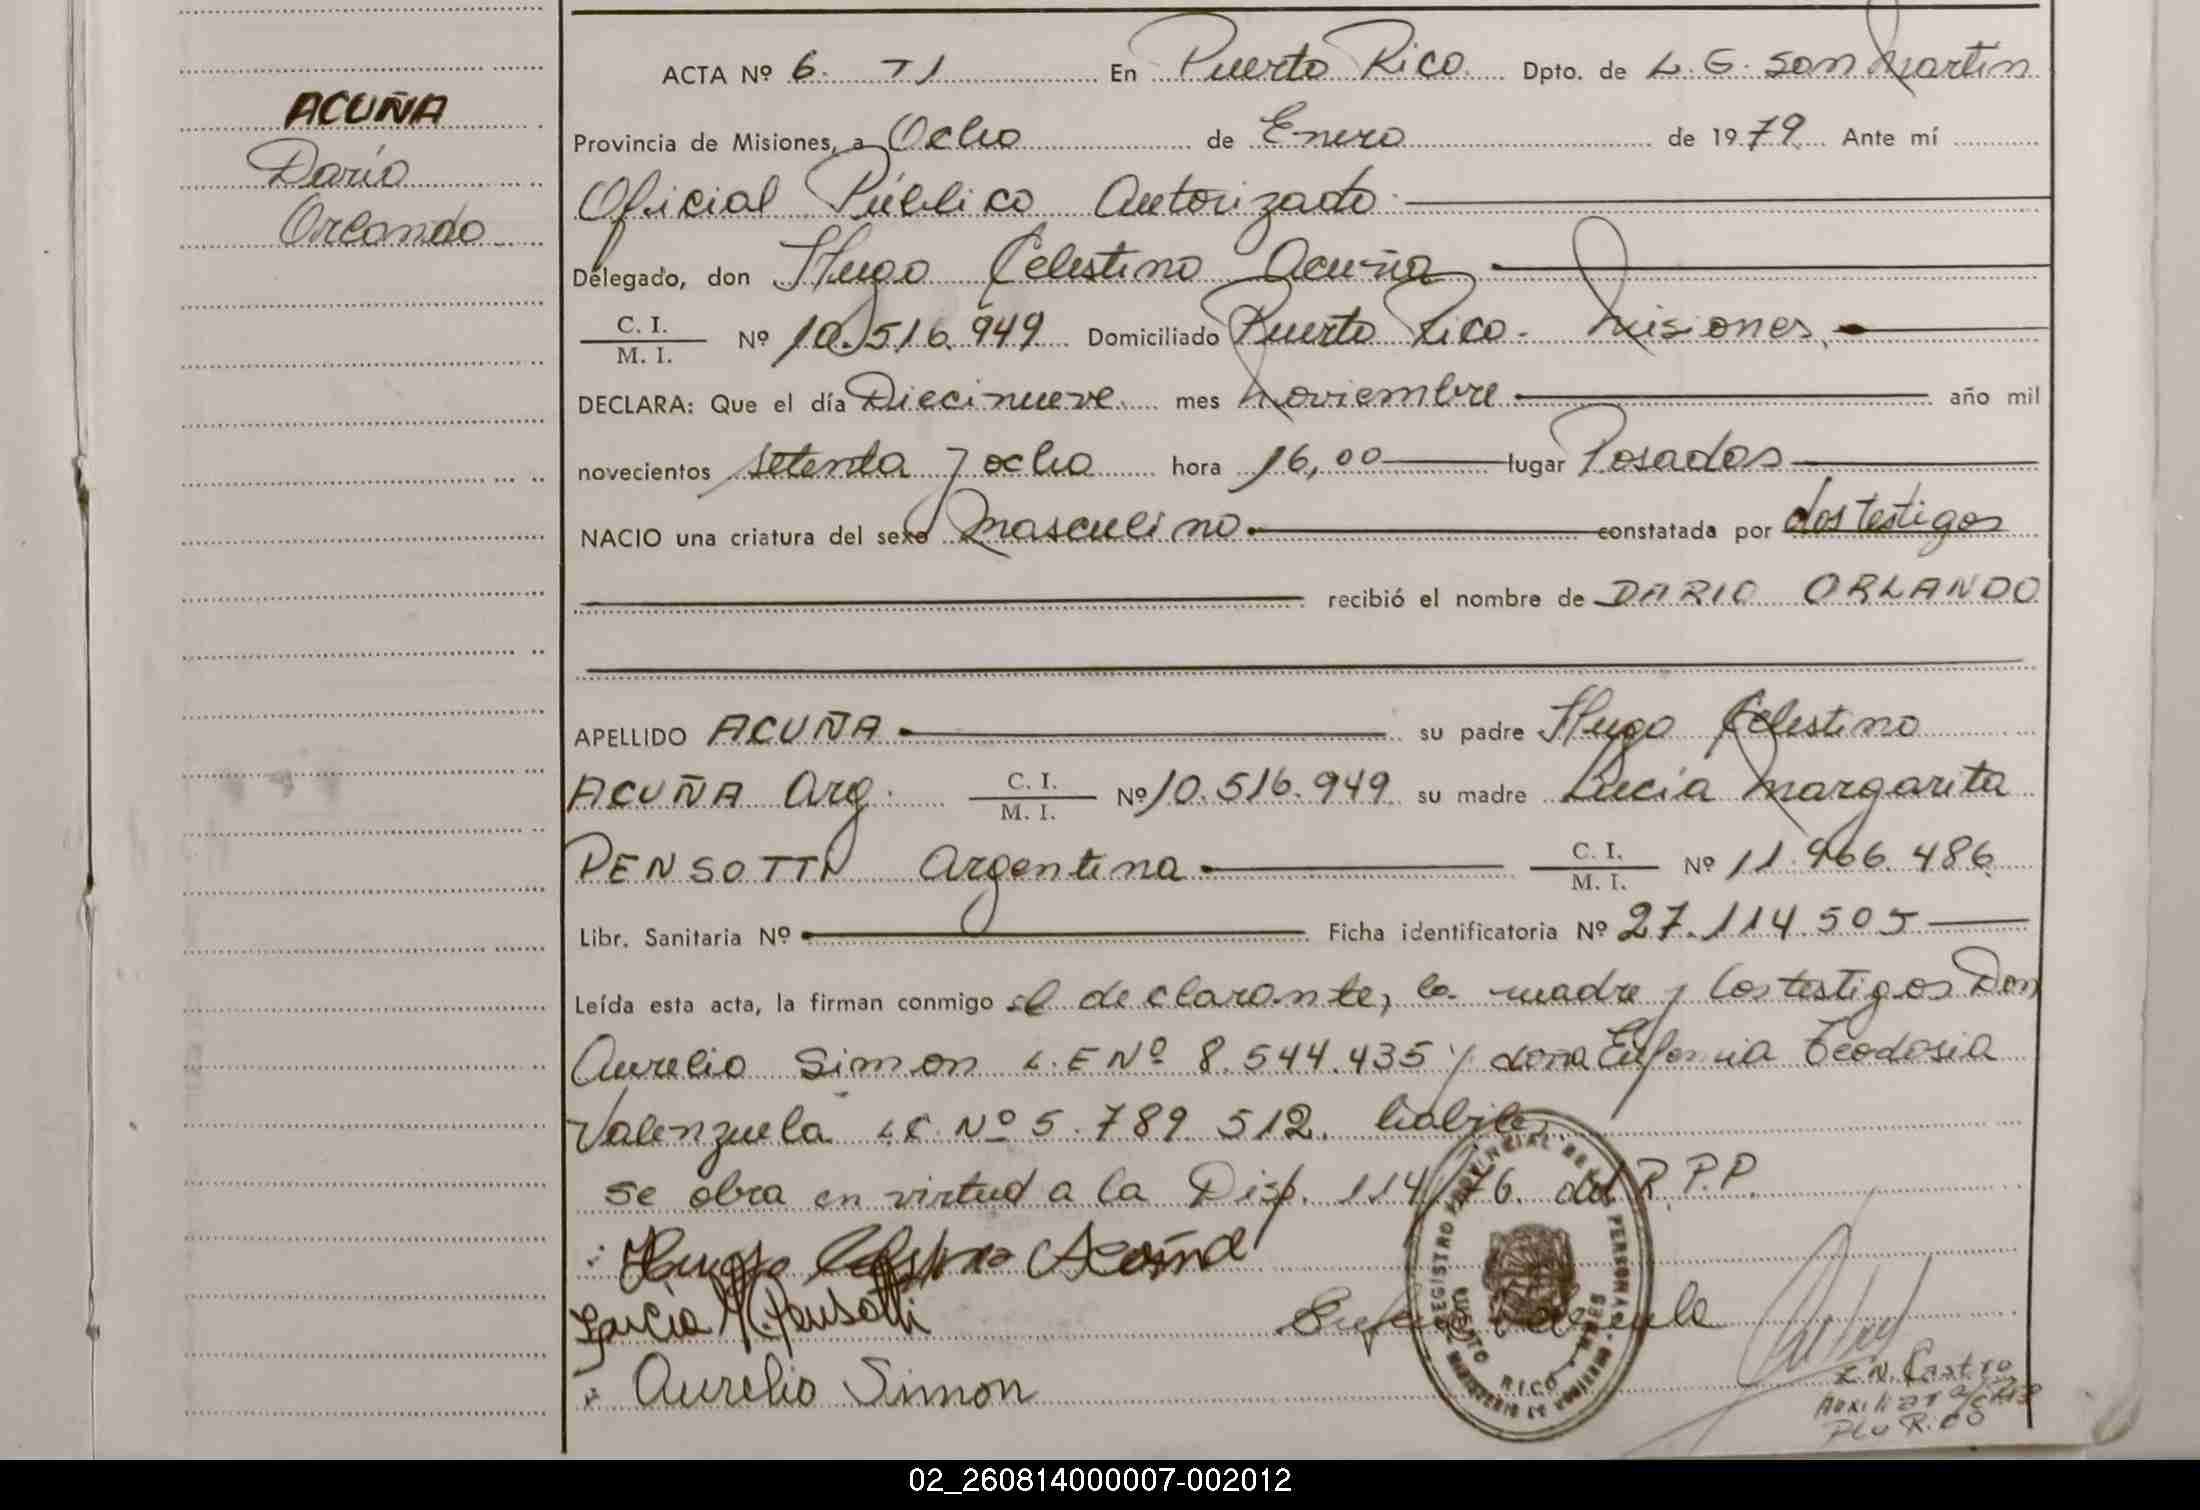 ACUÑA
Darío
Orlando
ACTA Nº 6. TI En Puerto Rico Dpto. de L. G. San Martín
Provincia de Misiones, a Ocho de Enero de 1979 Ante mí
Oficial Público Autorizado
Delegado, don Hugo Celestino Acuña
C. I. / M. I. Nº 10.516.949 Domiciliado Puerto Rico - Misiones,
DECLARA: Que el día Diecinueve mes Noviembre año mil
novecientos setenta y ocho hora 16,00 lugar Posadas
NACIO una criatura del sexo Masculino constatada por dos testigos
recibió el nombre de DARIO ORLANDO
APELLIDO ACUÑA su padre Hugo Celestino
ACUÑA Arg. C. I. / M. I. Nº 10.516.949 su madre Lucía Margarita
PENSOTTI Argentina C. I. / M. I. Nº 11.966.486
Libr. Sanitaria Nº Ficha identificatoria Nº 27.114.505
Leída esta acta, la firman conmigo el declarante, la madre y los testigos Don
Aurelio Simon L.E Nº 8.544.435 y doña Eufemia Teodosia
Valenzuela L.C. Nº 5.789.512. habiles
se obra en virtud a la Disp. 114/76. del R.P.P.
Hugo Celestino Acuña
Lucia M. Pensotti
Aurelio Simon
REGISTRO PROVINCIAL DE LAS PERSONAS
MINISTERIO DE GOBIERNO
PUERTO RICO - MNES
Castro
Auxiliar
Pto Rico
02_260814000007-002012